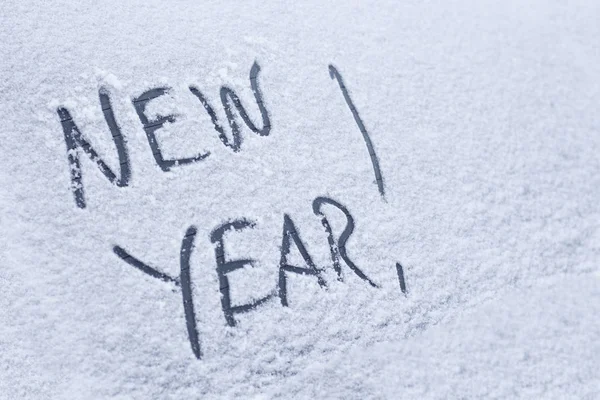 NEW
YEAR!